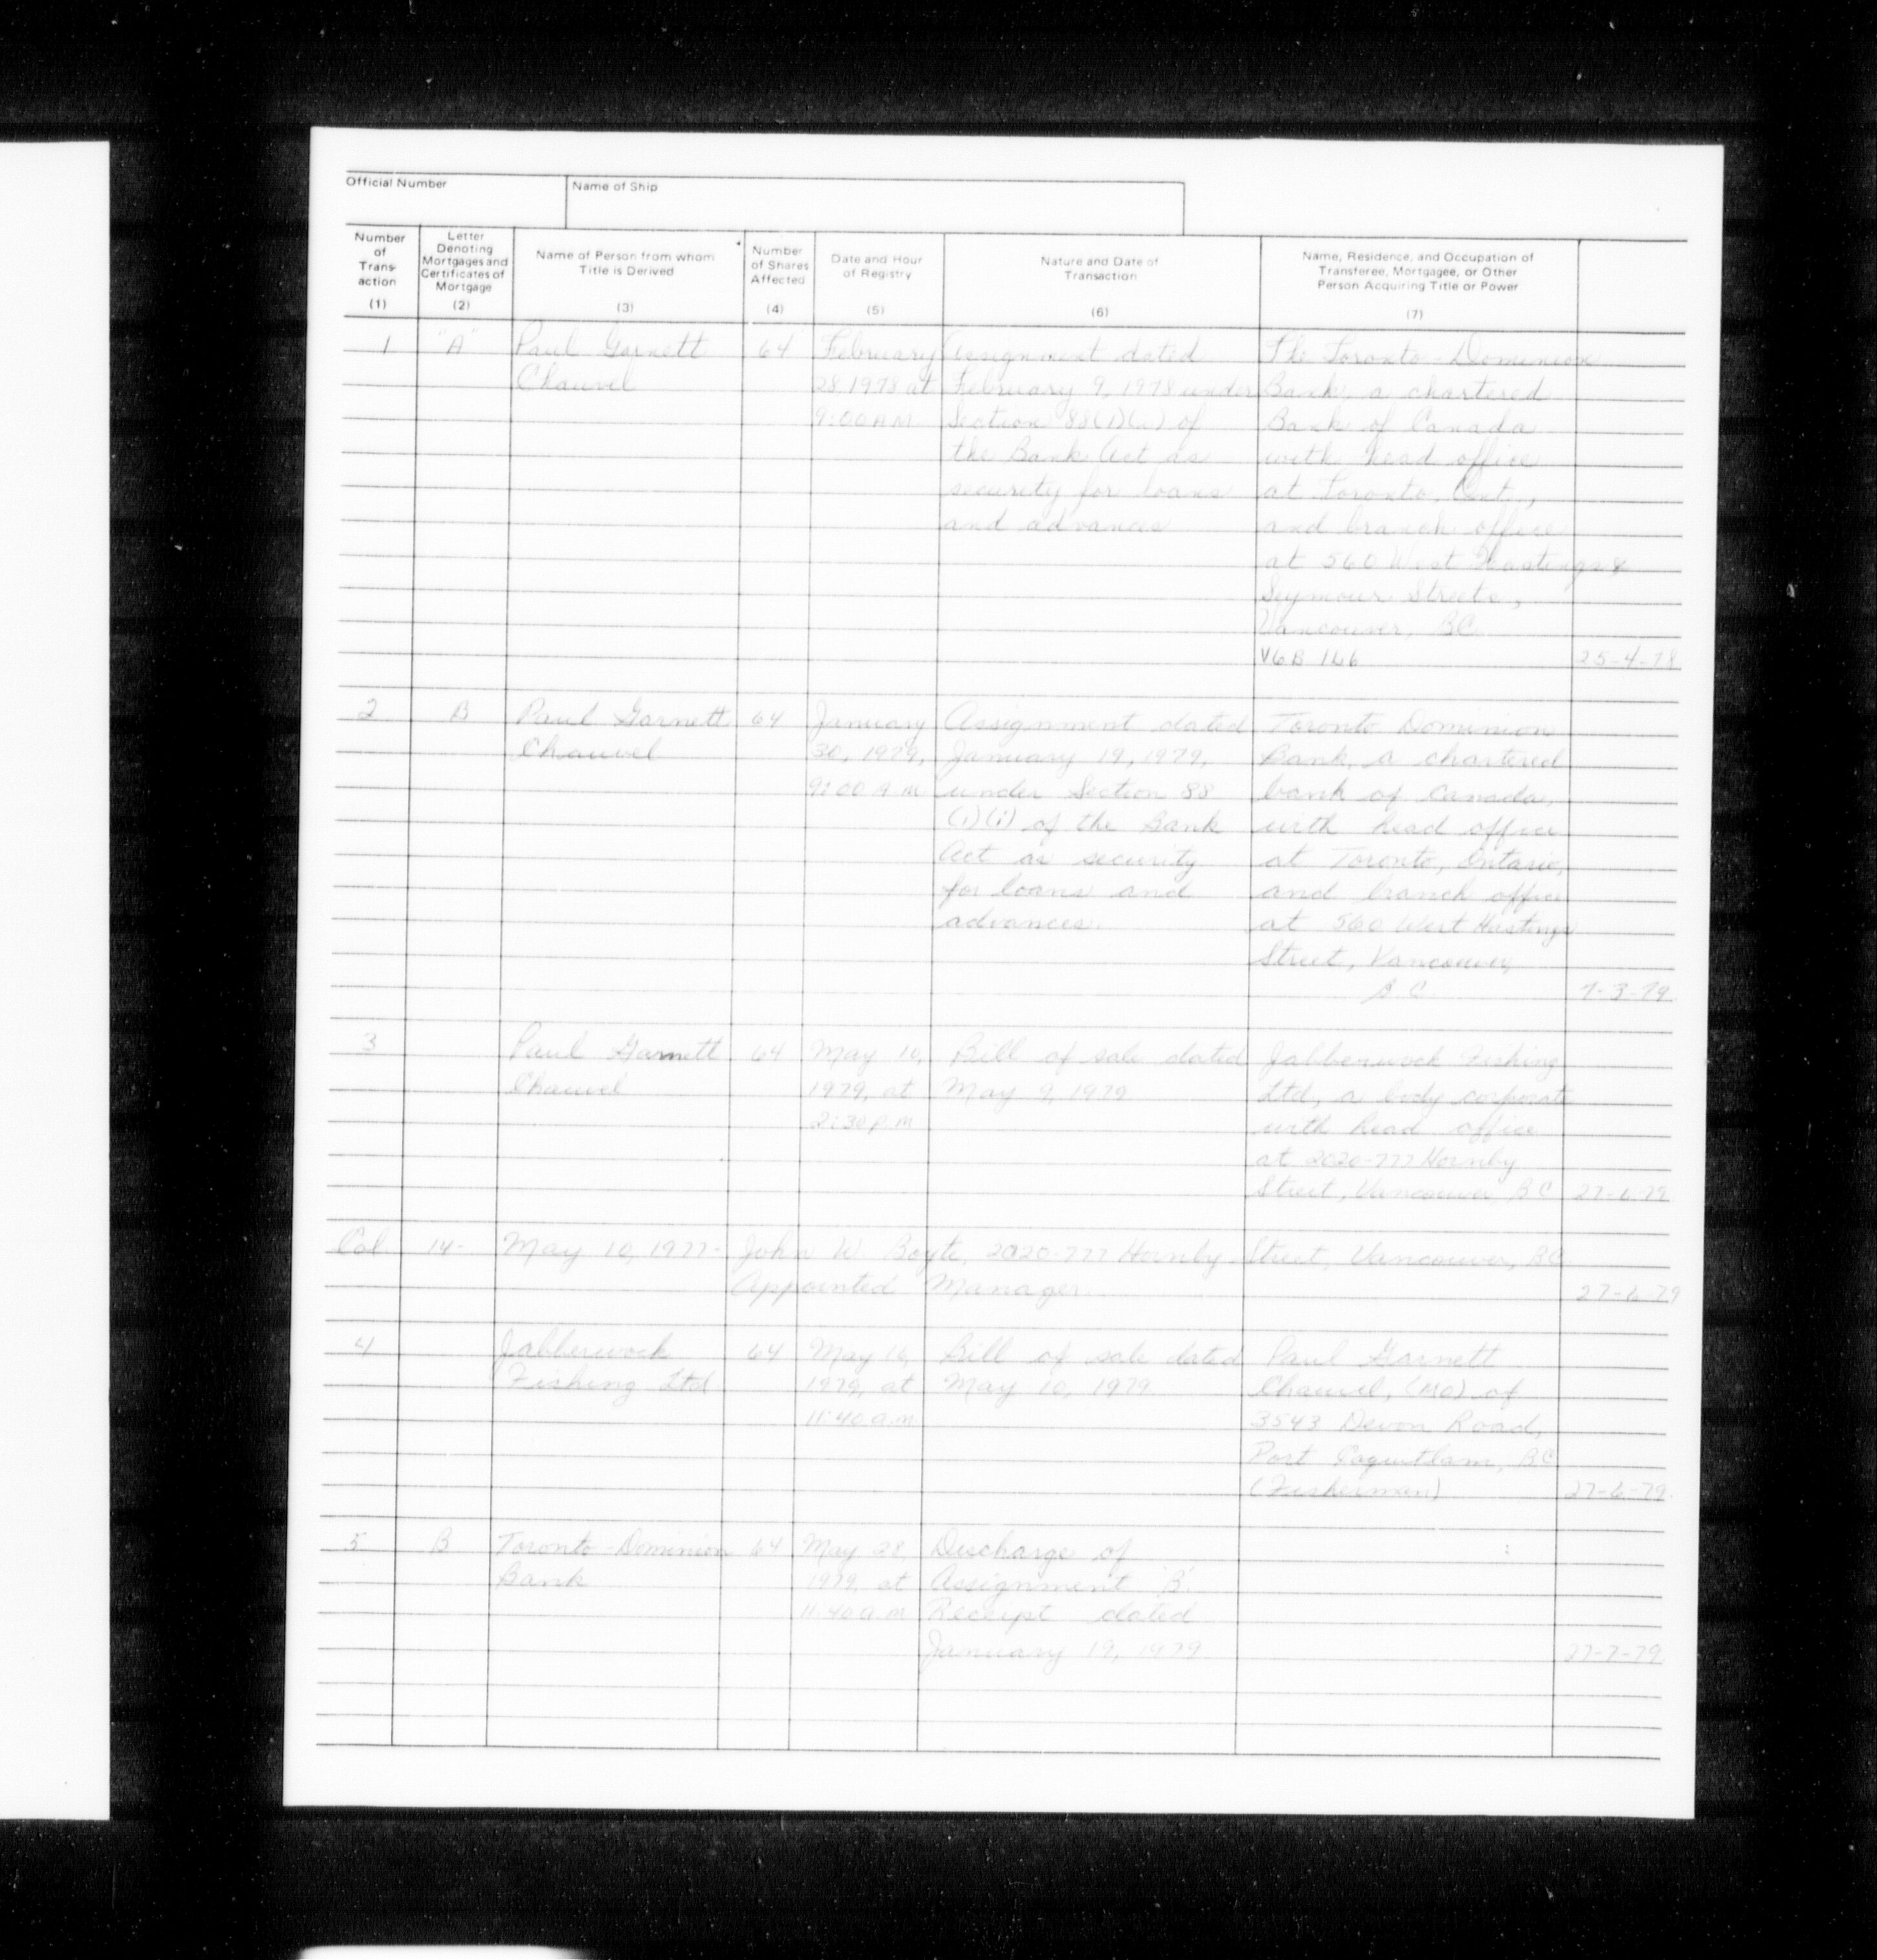 Official Number
Name of Ship
Number of Trans-action (1)
Letter Denoting Mortgages and Certificates of Mortgage (2)
Name of Person from whom Title is Derived (3)
Number of Shares Affected (4)
Date and Hour of Registry (5)
Nature and Date of Transaction (6)
Name, Residence, and Occupation of Transferee, Mortgagee, or Other Person Acquiring Title or Power (7)
1 "A" Paul Garnett 64 February Assignment dated The Toronto-Dominion
Chauvel 28 1978 at February 9, 1978 under Bank, a chartered
9:00 A.M. Section 88(1)(i) of Bank of Canada
the Bank Act as with head office
security for loans at Toronto, Ont.,
and advances and branch office
at 560 West Hastings &
Seymour Streets,
Vancouver, BC
V6B 1L6 25-4-78
2 B Paul Garnett 64 January Assignment dated Toronto Dominion
Chauvel 30, 1979, January 19, 1979, Bank, a chartered
9:00 A.M under Section 88 bank of Canada,
(1)(i) of the Bank with head office
Act as security at Toronto, Ontario,
for loans and and branch office
advances. at 560 West Hastings
Street, Vancouver,
B.C. 7-3-79.
3 Paul Garnett 64 May 10, Bill of sale dated Jabberwock Fishing
Chauvel 1979, at May 9, 1979 Ltd, a body corporate
2:30 P.m with head office
at 2020-777 Hornby
Street, Vancouver BC 27-6-79
Col. 14- May 10, 1977- John W. Boyte, 2020-777 Hornby Street, Vancouver, BC.
Appointed Manager. 27-6-79
4 Jabberwock 64 May 16, Bill of sale dated Paul Garnett
Fishing Ltd 1979, at May 10, 1979. Chauvel, (MO) of
11:40 a.m 3543 Devon Road,
Port Coquitlam, BC
(Fisherman) 27-6-79.
5 B Toronto-Dominion 64 May 28, Discharge of
Bank 1979, at Assignment 'B'.
11:40 a.m Receipt dated
January 19, 1979. 27-7-79